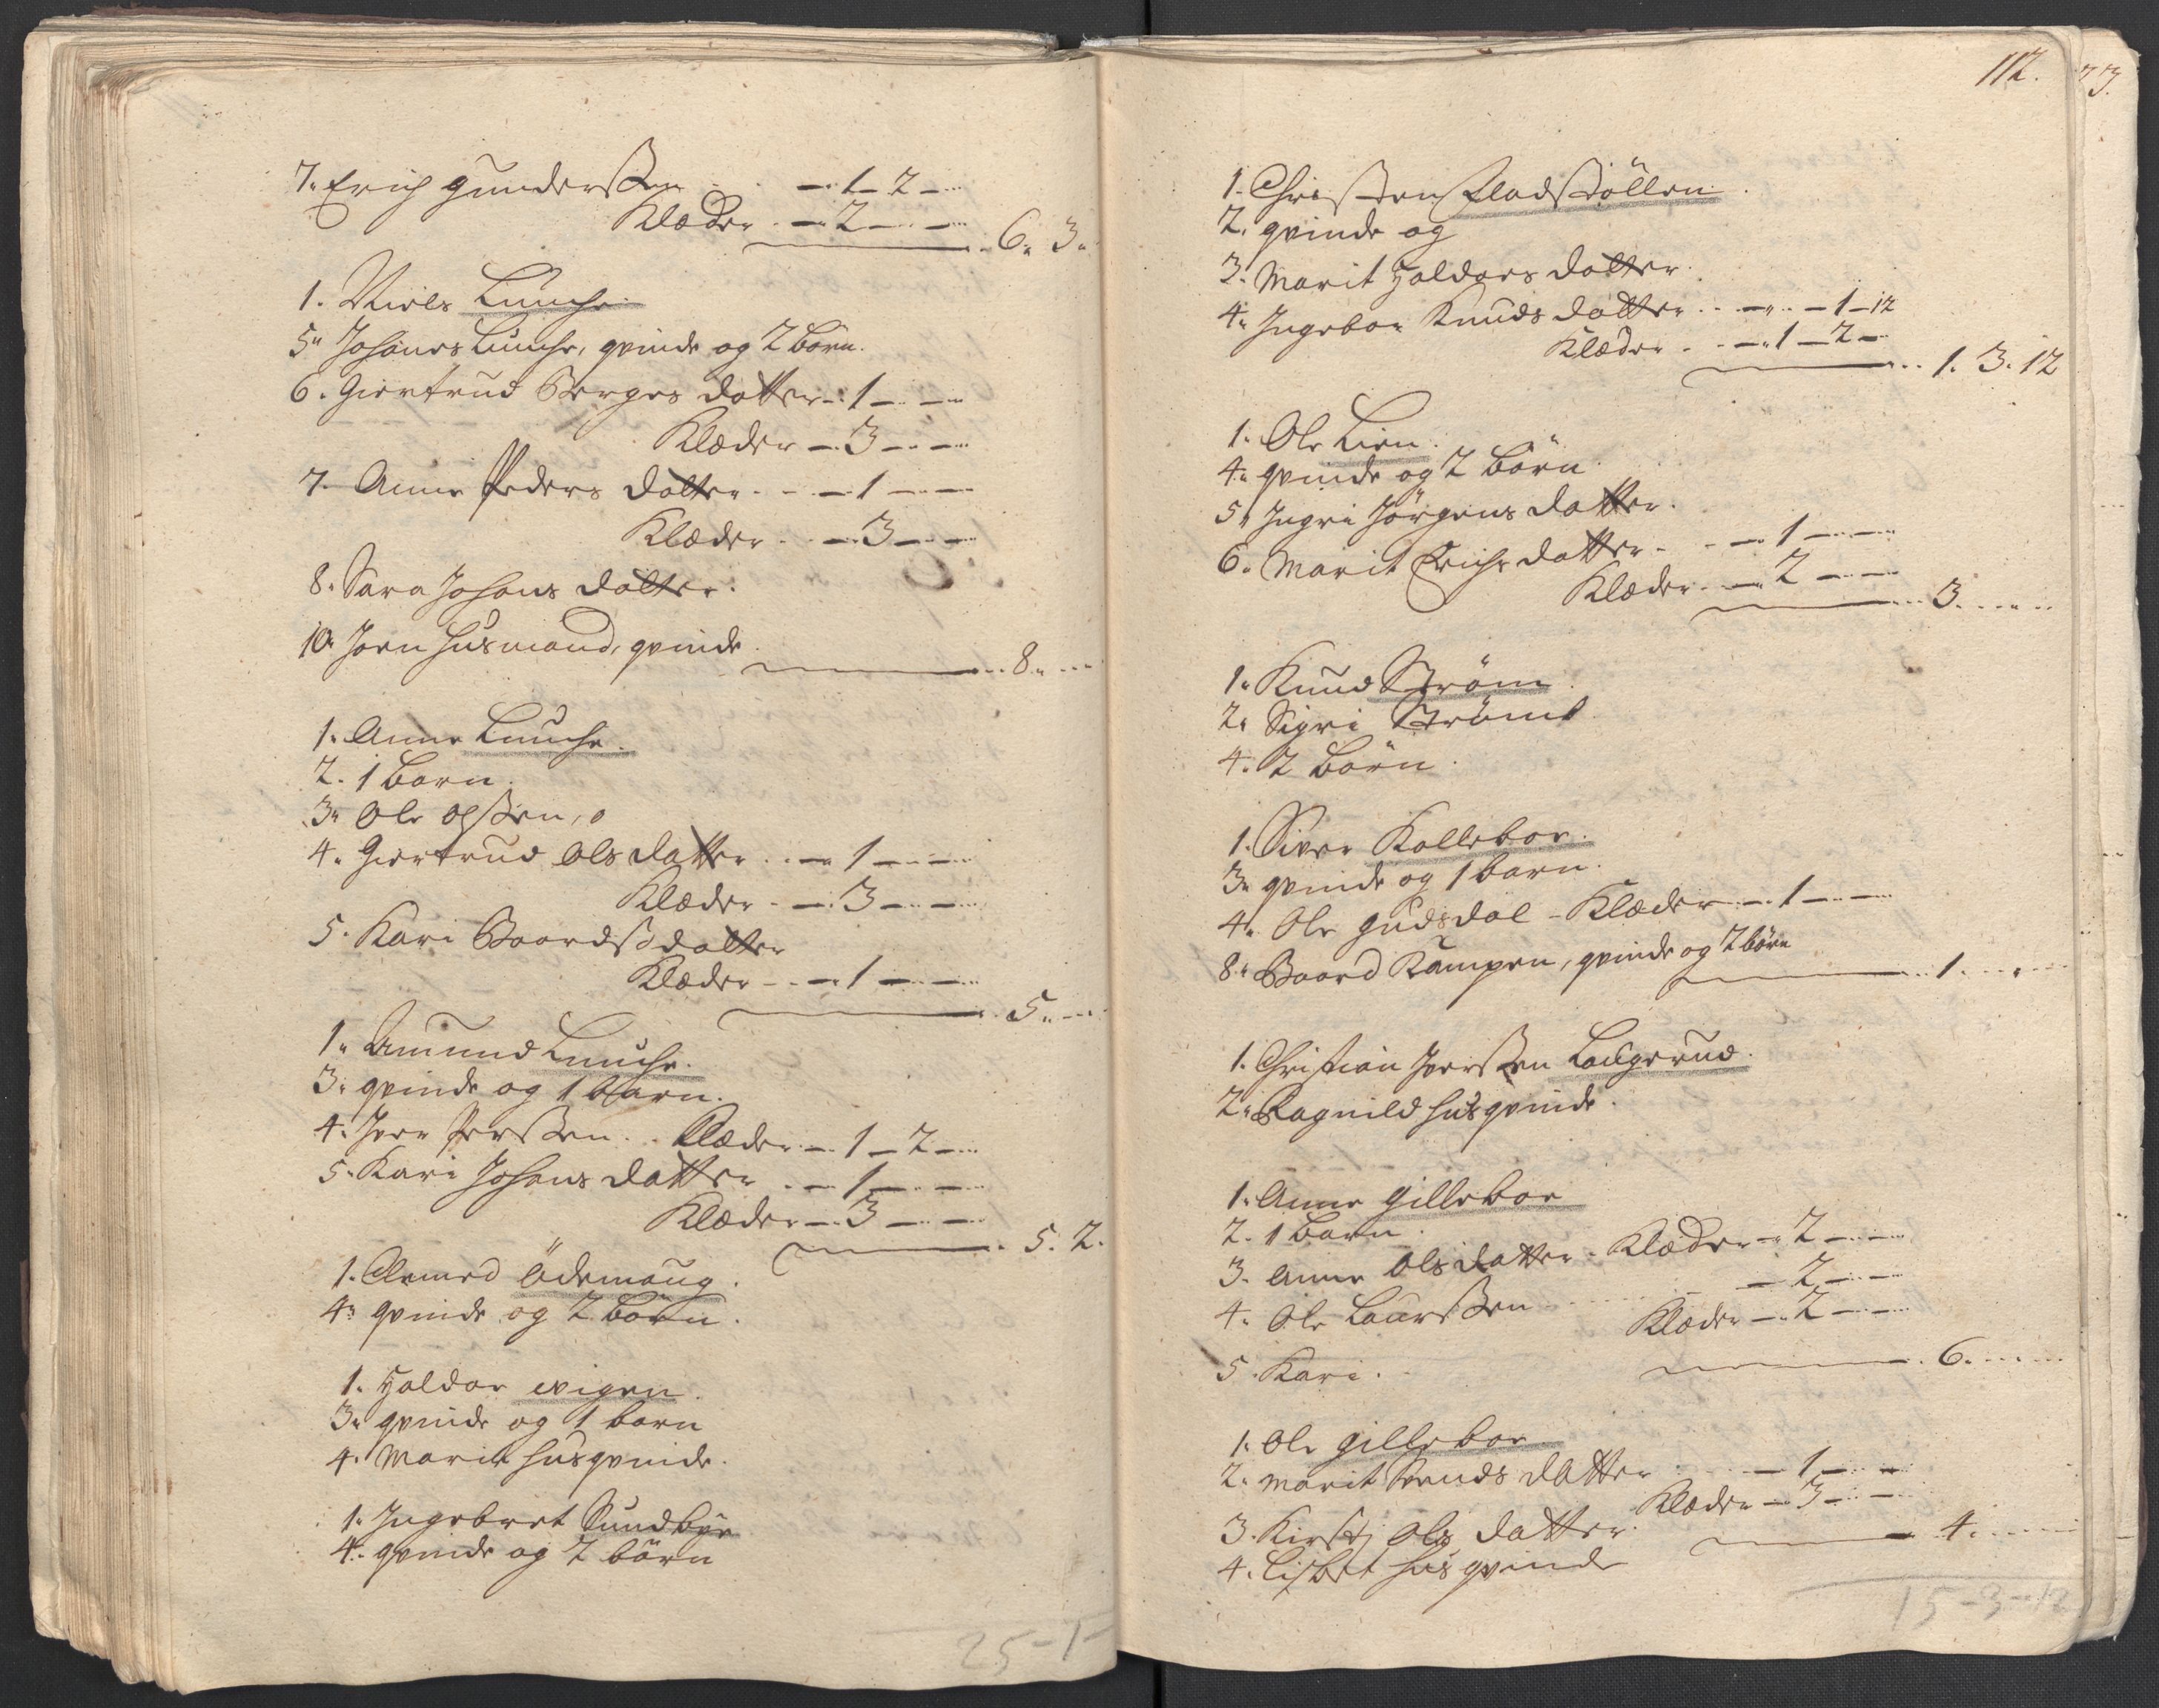 7. Erich Gunderssen - 1 - 2 -
Klæder - 2 - -
6. 3.
1. Niels Lunche
5. Johanes Lunche, qvinde og 2 børn.
6. Giertrud Børges datter - 1 - -
Klæder - 3 - -
7. Anne Peders datter - 1 - -
Klæder - 3 - -
8. Sara Johans datter.
10. Joen huusmand, qvinde
8.
1. Anne Lunche.
2. 1 barn.
3. Ole Olssen, o
4. Giertrud Ols datter - 1 - -
Klæder - 3 - -
5. Kari Baardss datter
Klæder - 1 - -
5.
1. Amund Lunche.
3. qvinde og 1 barn.
4. Iver Perssen. Klæder - 1 - 2 -
5. Kari Johans datter - 1 - -
Klæder - 3 - -
5. 2.
1. Clemed Ødemaug.
4. qvinde og 2 børn.
1. Haldor evigen.
3. qvinde og 1 barn
4. Marit husqvinde.
1. Ingebret Sundbye
4. qvinde og 2 børn
25 - 1 -
112.
73.
1. Christen Fladstøllen.
2. qvinde og
3. Marit Haldors datter.
4. Ingebor Knuds datter - - 1 - 12
Klæder - 1 - 2 -
1. 3. 12
1. Ole Lien.
4. qvinde og 2 børn.
5. Ingri Jørgens datter.
6. Marit Erichs datter - 1 - -
Klæder - 2 - -
3.
1. Knud Strøm.
2. Sigri Strøms
4. 2 børn.
1. Siver Kollebor.
3. qvinde og 1 barn.
4. Ole Gudsdal - Klæder - 1 - -
8. Baard Kampen, qvinde og 2 børn
1.
1. Christian Iverssen Laugerud.
2. Ragnild husqvinde.
1. Anne Gillebor
2. 1 barn.
3. Anne Ols datter. Klæder - 2 - -
4. Ole Laurssen - 2 - -
Klæder - 2 - -
5. Kari.
6.
1. Ole Gillebor
2. Marit Svends datter - 1 - -
Klæder - 3 - -
3. Kirstj Ols datter.
4.
4. Lisbet husqvinde
15 - 3 - 12